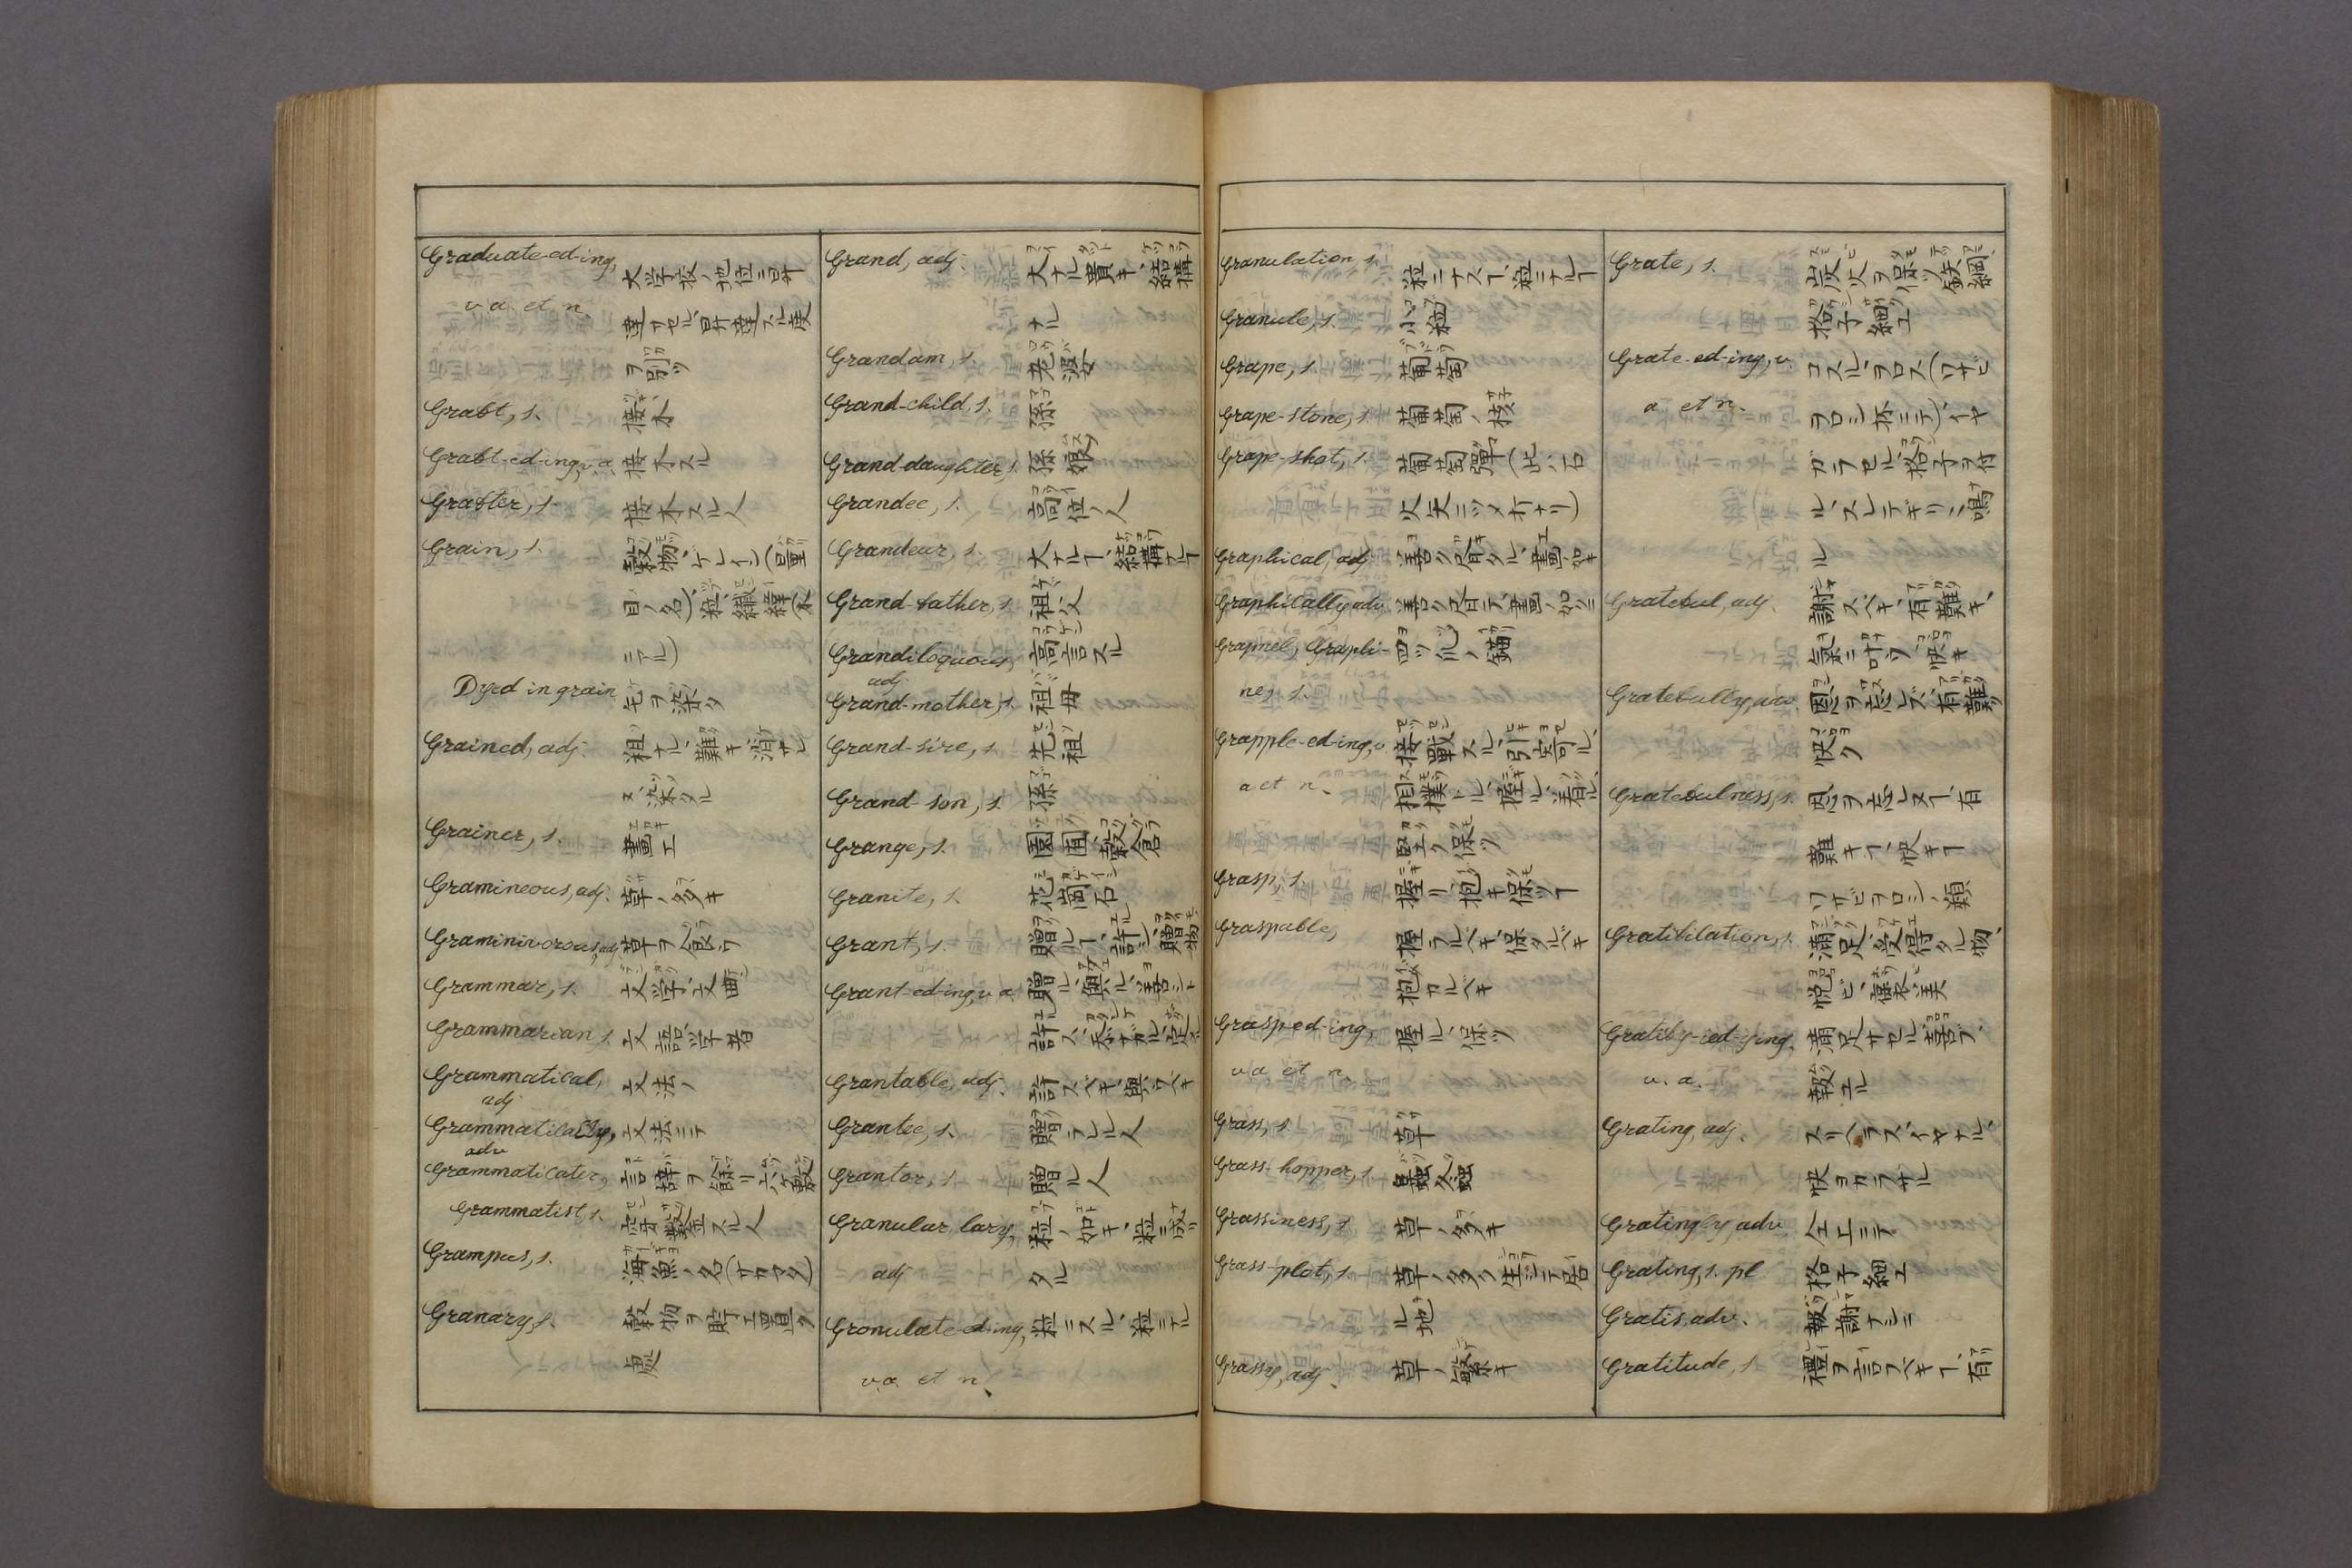 Graduate-ed-ing, 大学校ノ地位ニ昇
v.a. et n. 達サセル、昇達スル度
ヲ引ツ
Graft, s. 接木
Graft-ed-ing, v.a. 接木スル
Grafter, s. 接木スル人
Grain, s. 穀物、ゲレイン(目量
目ノ名)、粒、繊緯(木
ニアル)
Dyed in grain 毛ヲ染ク
Grained, adj. 粗ナル、難キ、消サレ
ヌ、染タル
Grainer, s. 畫工
Gramineous, adj. 草ノ多キ
Graminivorous, adj. 草ヲ食ウ
Grammar, s. 文学、文典
Grammarian, s. 文語学者
Grammatical, 文法ノ
adj
Grammatically, 文法ニテ
adv
Grammaticater, 言辞ヲ餘リ六ケ敷
Grammatist, s. 穿鑿スル人
Grampus, s. 海魚ノ名(サカマタ)
Granary, s. 穀物ヲ貯エ置ク
處
Grand, adj. 大ナル、貴キ、結構
ナル
Grandam, s. 老婆
Grand-child, s. 孫
Grand-daughter, s. 孫娘
Grandee, s. 高位ノ人
Grandeur, s. 大ナルヿ、結構ナルヿ
Grand-father, s. 祖父
Grandiloquous, 高言スル
adj.
Grand-mother, s. 祖母
Grand-sire, s. 先祖
Grand-son, s. 孫
Grange, s. 園圃、穀倉
Granite, s. 花崗石
Grant, s. 贈ルヿ、許シ、贈物
Grant-ed-ing, v.a. 贈ル、與ル、善シト
許ス
Grantable, adj. 許スベキ、與ウベキ
Grantee, s. 贈ラルル人
Grantor, s. 贈ル人
Granular lary, 粒ノ如キ、粒ニ成リ
adj タル
Granulate-ed-ing, 粒ニスル、粒ニナル
v.a. et n.
Granulation s. 粒ニナスヿ、粒ニナルヿ
Granule, s. 小粒
Grape, s. 葡萄
Grape-stone, s. 葡萄ノ核
Grape-shot, s. 葡萄彈(此ハ石
火矢ニツメ打ナリ)
Graphical, adj 善ク書キタル、畫ノ如キ
Graphically adv. 善ク書テ、畫ノ如クニ
Grapnel, Grapli- 四ツ爪ノ錨
ne, s.
Grapple-ed-ing, v. 接戰スル、引寄ル、
a et n. 相撲トル、握ル、着ル、
堅ク保ツ
Grasp, s. 握リ、抱キ、保ツヿ
Graspable, 握ラルベキ、保タルベキ
抱カルベキ
Grasped-ing, 握ル、保ツ
v.a et n.
Grass, s. 草
Grass-hopper, s. 螽
Grassiness, s. 草ノ多キ
Grass-plot, s. 草ノ多ク生シテ居
ル地
Grassy, adj. 草ノ繁キ
Grate, s. 炭火ヲ保ツ鉄網、
格子細工
Grate-ed-ing, v. コスル、ヲロス(ワサビ
a et n. ヲロシ抔ニテ)、イヤ
ガラセル、格子ヲ付
ル、スレテギリ〻鳴
ル
Grateful, adj. 謝スベキ、有難キ、
氣ニ叶ウ、快キ
Gratefully, adv. 恩ヲ忘レズ、有難ク
快ク
Gratefulness, s. 恩ヲ忘レヌヿ、有
難キヿ、快キヿ
ワサビヲロシノ類
Gratification, s. 満足、受得タル物、
悦ビ、褒美
Gratify-ied-ying, 満足サセル、喜ブ、
v. a. 報エル
Grating, adj. スリヘラス、イヤナル、
快ヨカラザル
Gratingly adv. 仝上ニテ
Grating, s. pl 格子細工
Gratis, adv. 報謝ナシニ
Gratitude, s. 禮ヲ言フベキヿ、有